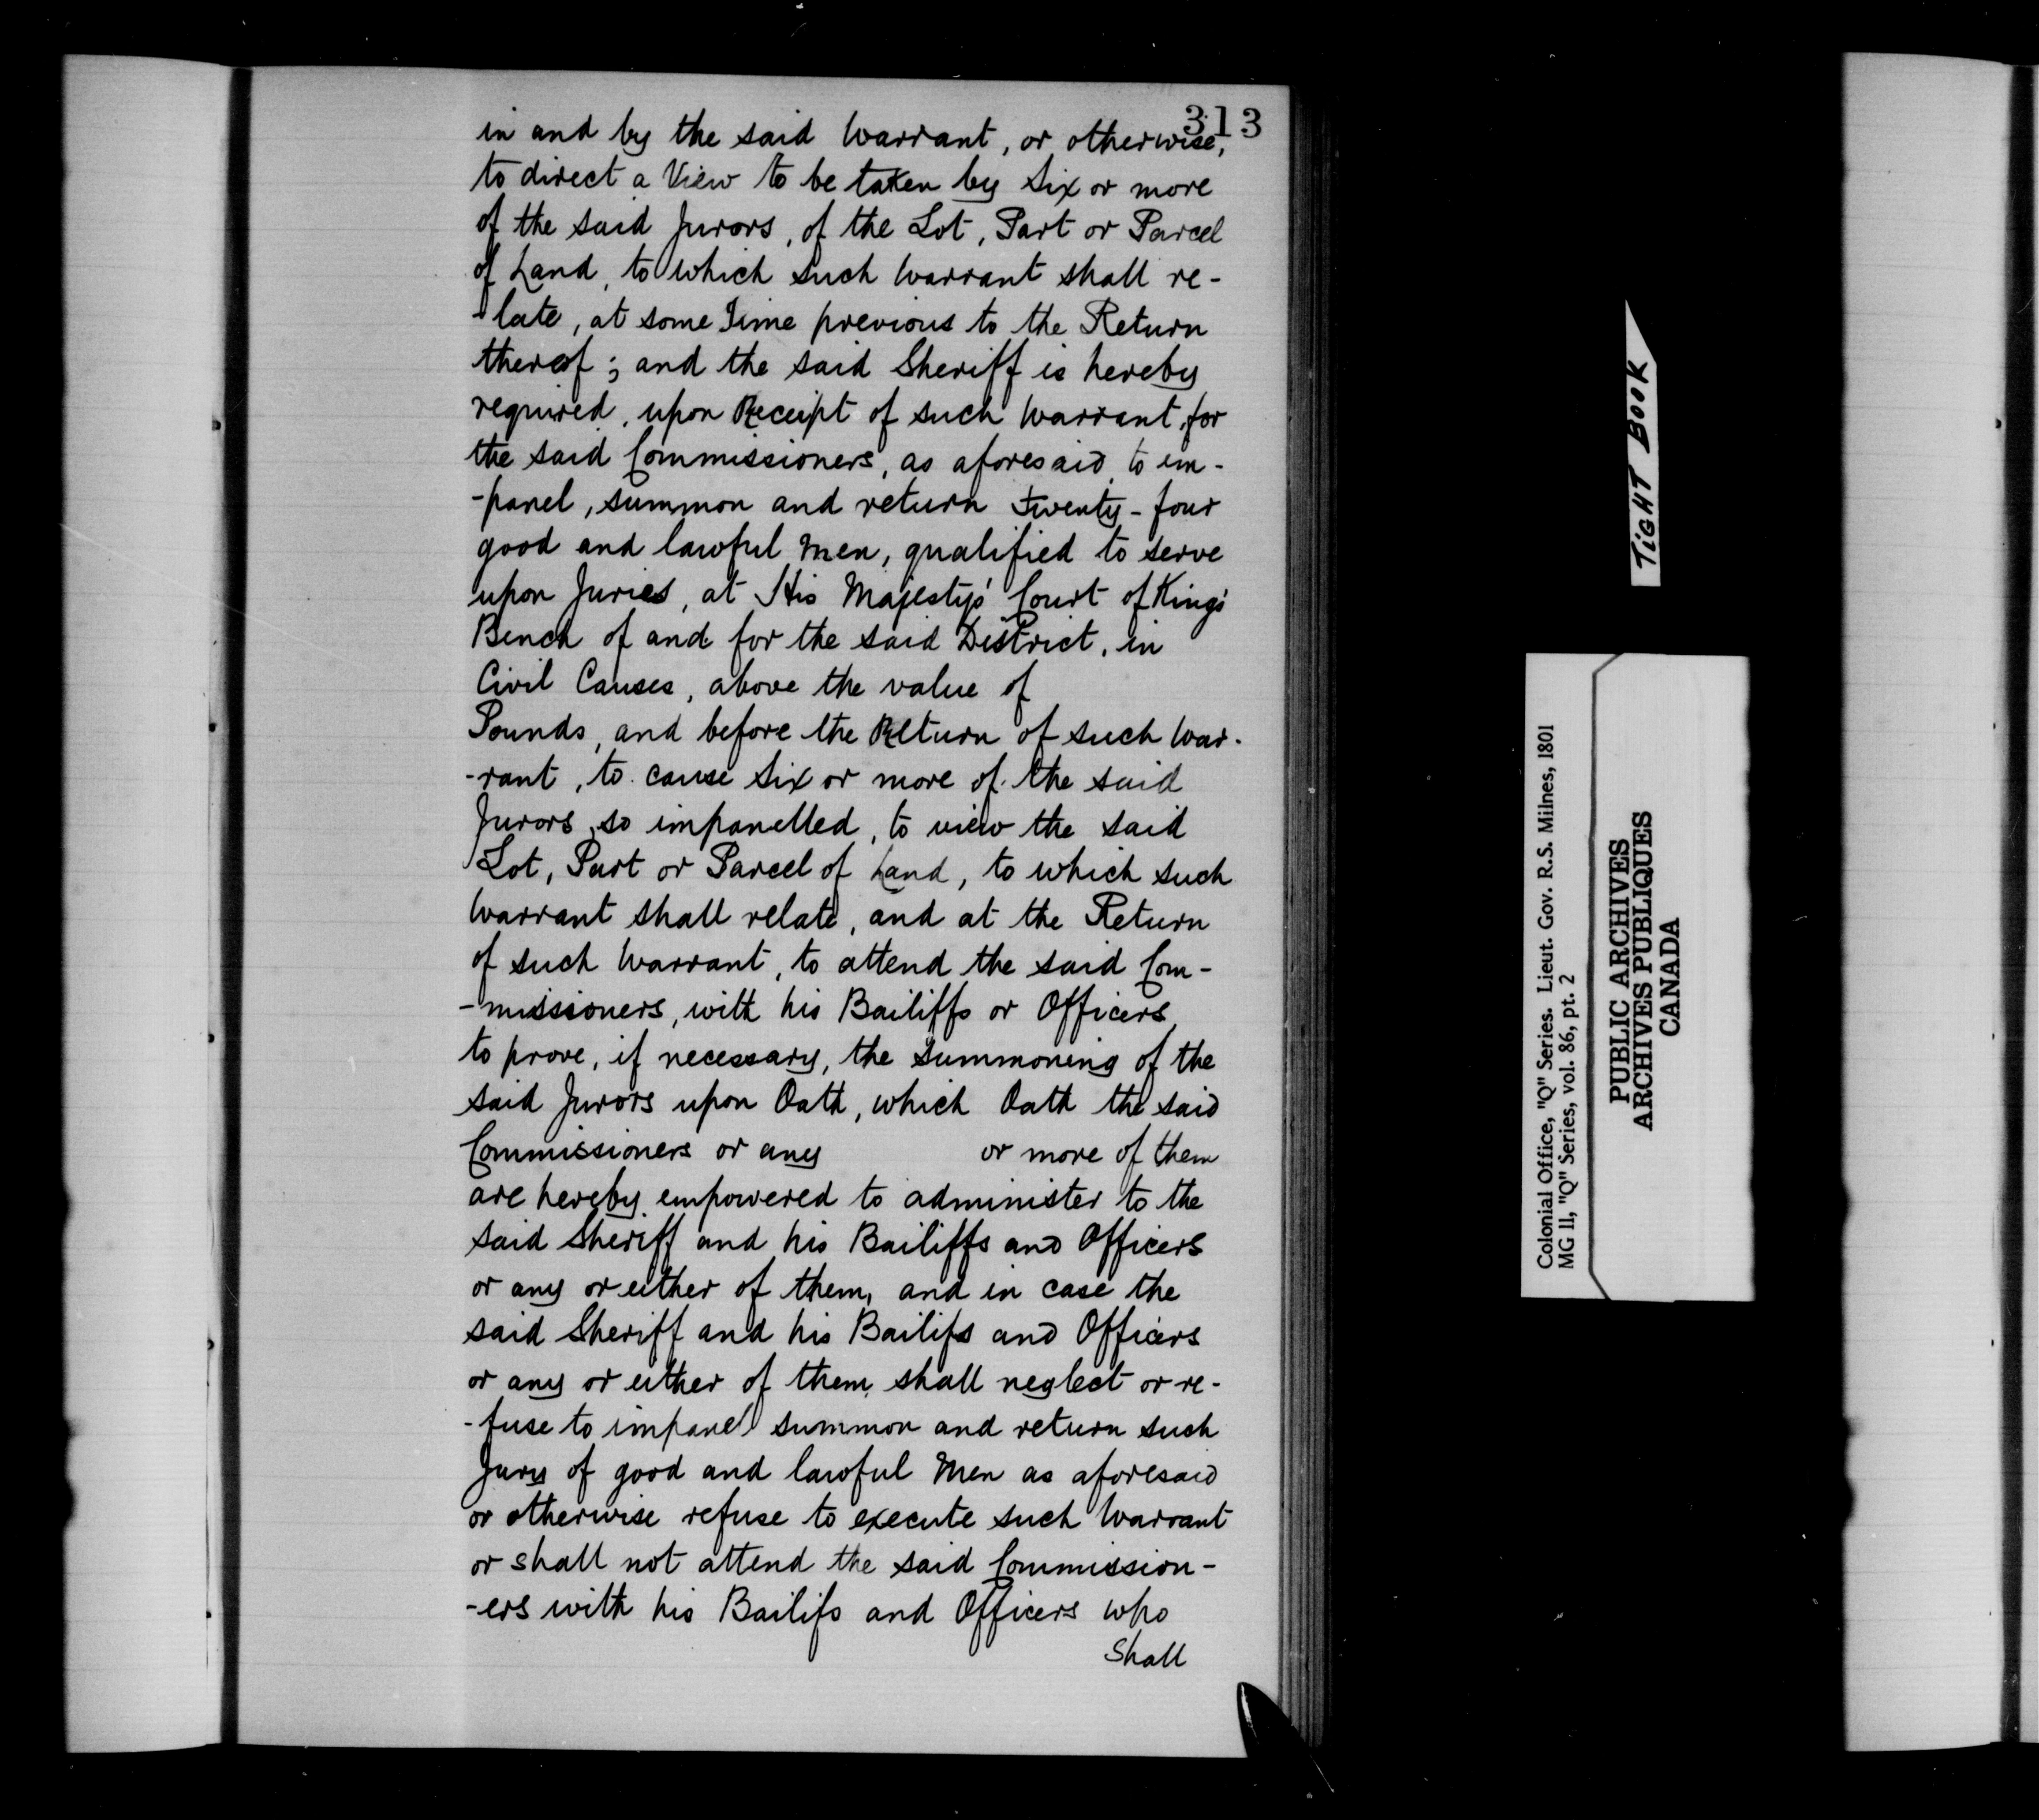 313
in and by the said Warrant, or otherwise,
to direct a View to be taken by Six or more
of the said Jurors, of the Lot, Part or Parcel
of Land, to which such Warrant shall re-
-late, at some Time previous to the Return
thereof; and the said Sheriff is hereby
required, upon Receipt of such Warrant, for
the said Commissioners, as aforesaid, to im-
-panel, summon and return twenty-four
good and lawful Men, qualified to serve
upon Juries, at His Majesty's Court of King's
Bench of and for the said District, in
Civil Causes, above the value of
Pounds, and before the Return of such War-
-rant, to cause six or more of the said
Jurors, so impanelled, to view the said
Lot, Part or Parcel of Land, to which such
Warrant shall relate, and at the Return
of such Warrant, to attend the said Com-
-missioners, with his Bailiffs or Officers,
to prove, if necessary, the Summoning of the
said Jurors upon Oath, which Oath the said
Commissioners or any or more of them
are hereby empowered to administer to the
said Sheriff and his Bailiffs and Officers
or any or either of them, and in case the
said Sheriff and his Bailifs and Officers
or any or either of them, shall neglect or re-
-fuse to impanel summon and return such
Jury of good and lawful Men as aforesaid
or otherwise refuse to execute such Warrant
or shall not attend the said Commission-
-ers with his Bailifs and Officers who
Shall
TIGHT BOOK
Colonial Office, "Q" Series. Lieut. Gov. R.S. Milnes, 1801
MG 11, "Q" Series, vol. 86, pt. 2
PUBLIC ARCHIVES
ARCHIVES PUBLIQUES
CANADA